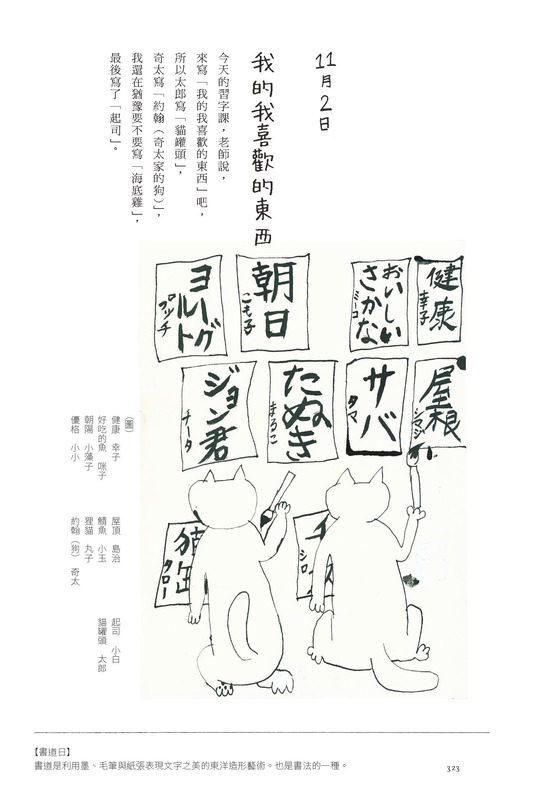 11月2日
我的我喜歡的東西
今天的習字課，老師說，
來寫「我的我喜歡的東西」吧，
所以太郎寫「貓罐頭」，
奇太寫「約翰（奇太家的狗）」，
我還在猶豫要不要寫「海底雞」，
最後寫了「起司」。
健康
幸子
おいしい
さかな
ミーコ
朝日
こも子
ヨーグ
ルート
プッチ
屋根
シマジ
サバ
タマ
たぬき
まるこ
ジョン君
チータ
シロ
（圖）
健康 幸子
好吃的魚 咪子
朝陽 小藻子
優格 小小
屋頂 島治
鯖魚 小玉
狸貓 丸子
約翰（狗） 奇太
起司 小白
貓罐頭 太郎
【書道日】
書道是利用墨、毛筆與紙張表現文字之美的東洋造形藝術。也是書法的一種。
323